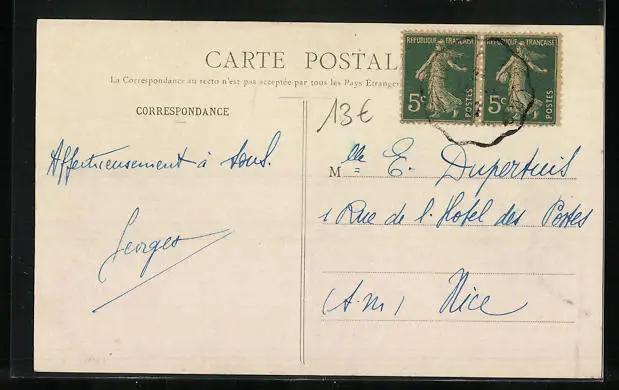 CARTE POSTAL
La Correspondance au recto n'est pas acceptée par tous les Pays Étrangers
RÉPUBLIQUE FRANÇAISE
5c
POSTES
RÉPUBLIQUE FRANÇAISE
5c
POSTES
CORRESPONDANCE
13€
Affectueusement à tous.
Georges
Mlle E. Dupertuis
1 Rue de l'Hotel des Postes
(A.M) Nice